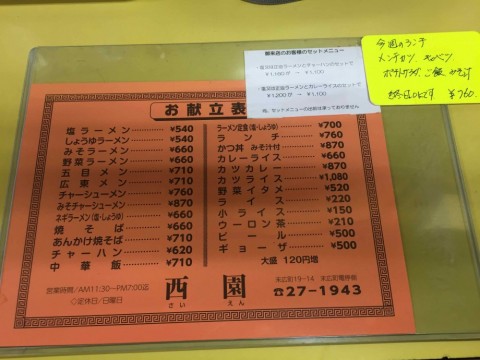 御来店のお客様のセットメニュー
¥1,100
¥1,200が → ¥1,100
尚、セットメニューのお持は凍っておりません
今週のランチ
メンチカツ、キャベツ
ポテトサラダ、ご飯、みそ汁
¥760
お献立表
塩ラーメン ¥540
しょうゆラーメン ¥540
みそラーメン ¥660
野菜ラーメン ¥660
五目メン ¥710
広東メン ¥710
チャーシューメン ¥760
みそチャーシューメン ¥870
ネギラーメン(塩・しょうゆ) ¥660
焼そば ¥660
あんかけ焼そば ¥710
チャーハン ¥620
中華飯 ¥710
ラーメン定食(塩・しょうゆ) ¥700
ランチ ¥760
かつ丼 みそ汁付 ¥870
カレーライス ¥660
カツカレー ¥870
カツライス ¥1,080
野菜イタメ ¥520
ライス ¥220
小ライス ¥150
ウーロン茶 ¥210
ビール ¥500
ギョーザ ¥500
大盛 120円増
営業時間/AM11:30~PM7:00迄
◇定休日/日曜日
西園
さい えん
末広町19-14 末広町電停前
☎27-1943